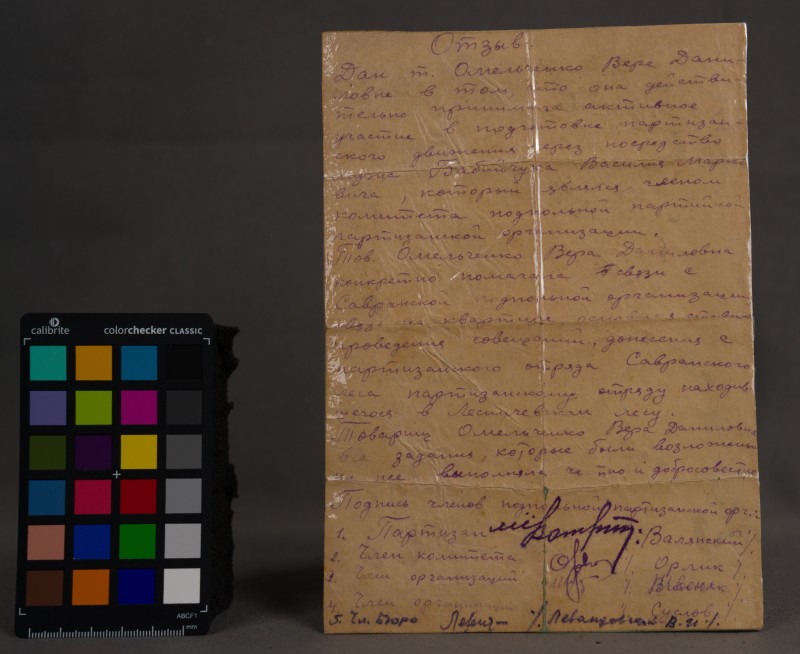 Отзыв.
Дан т. Омельченко Вере Дани-
ловне в том, что она действи-
тельно принимала активное
участие в подготовке партизан-
ского движения через посредство
мужа Бабийчука Василия Марко
вича, который являлся членом
комитета подпольной партийной
партизанской организации.
Тов. Омельченко Вера Даниловна
конкретно помагала в связи с
Савранской подпольной организацией
на квартире
проведения совещаний, донесения с
партизанского отряда Савранского
леса партизанскому отряду находив
шегося в лесу.
Товарищ Омельченко Вера Даниловна
все задания, которые были возложены
на нее выполняла честно и добросовестно
Подпись членов подпольной партизанской орг.:
1. Партизан Валянский
2. Член комитета Орлик
3. Член организации
4. Член организации Суслов
5. Чл. Бюро Левандовская В. И.
calibrite colorchecker CLASSIC
ABCF1
mm